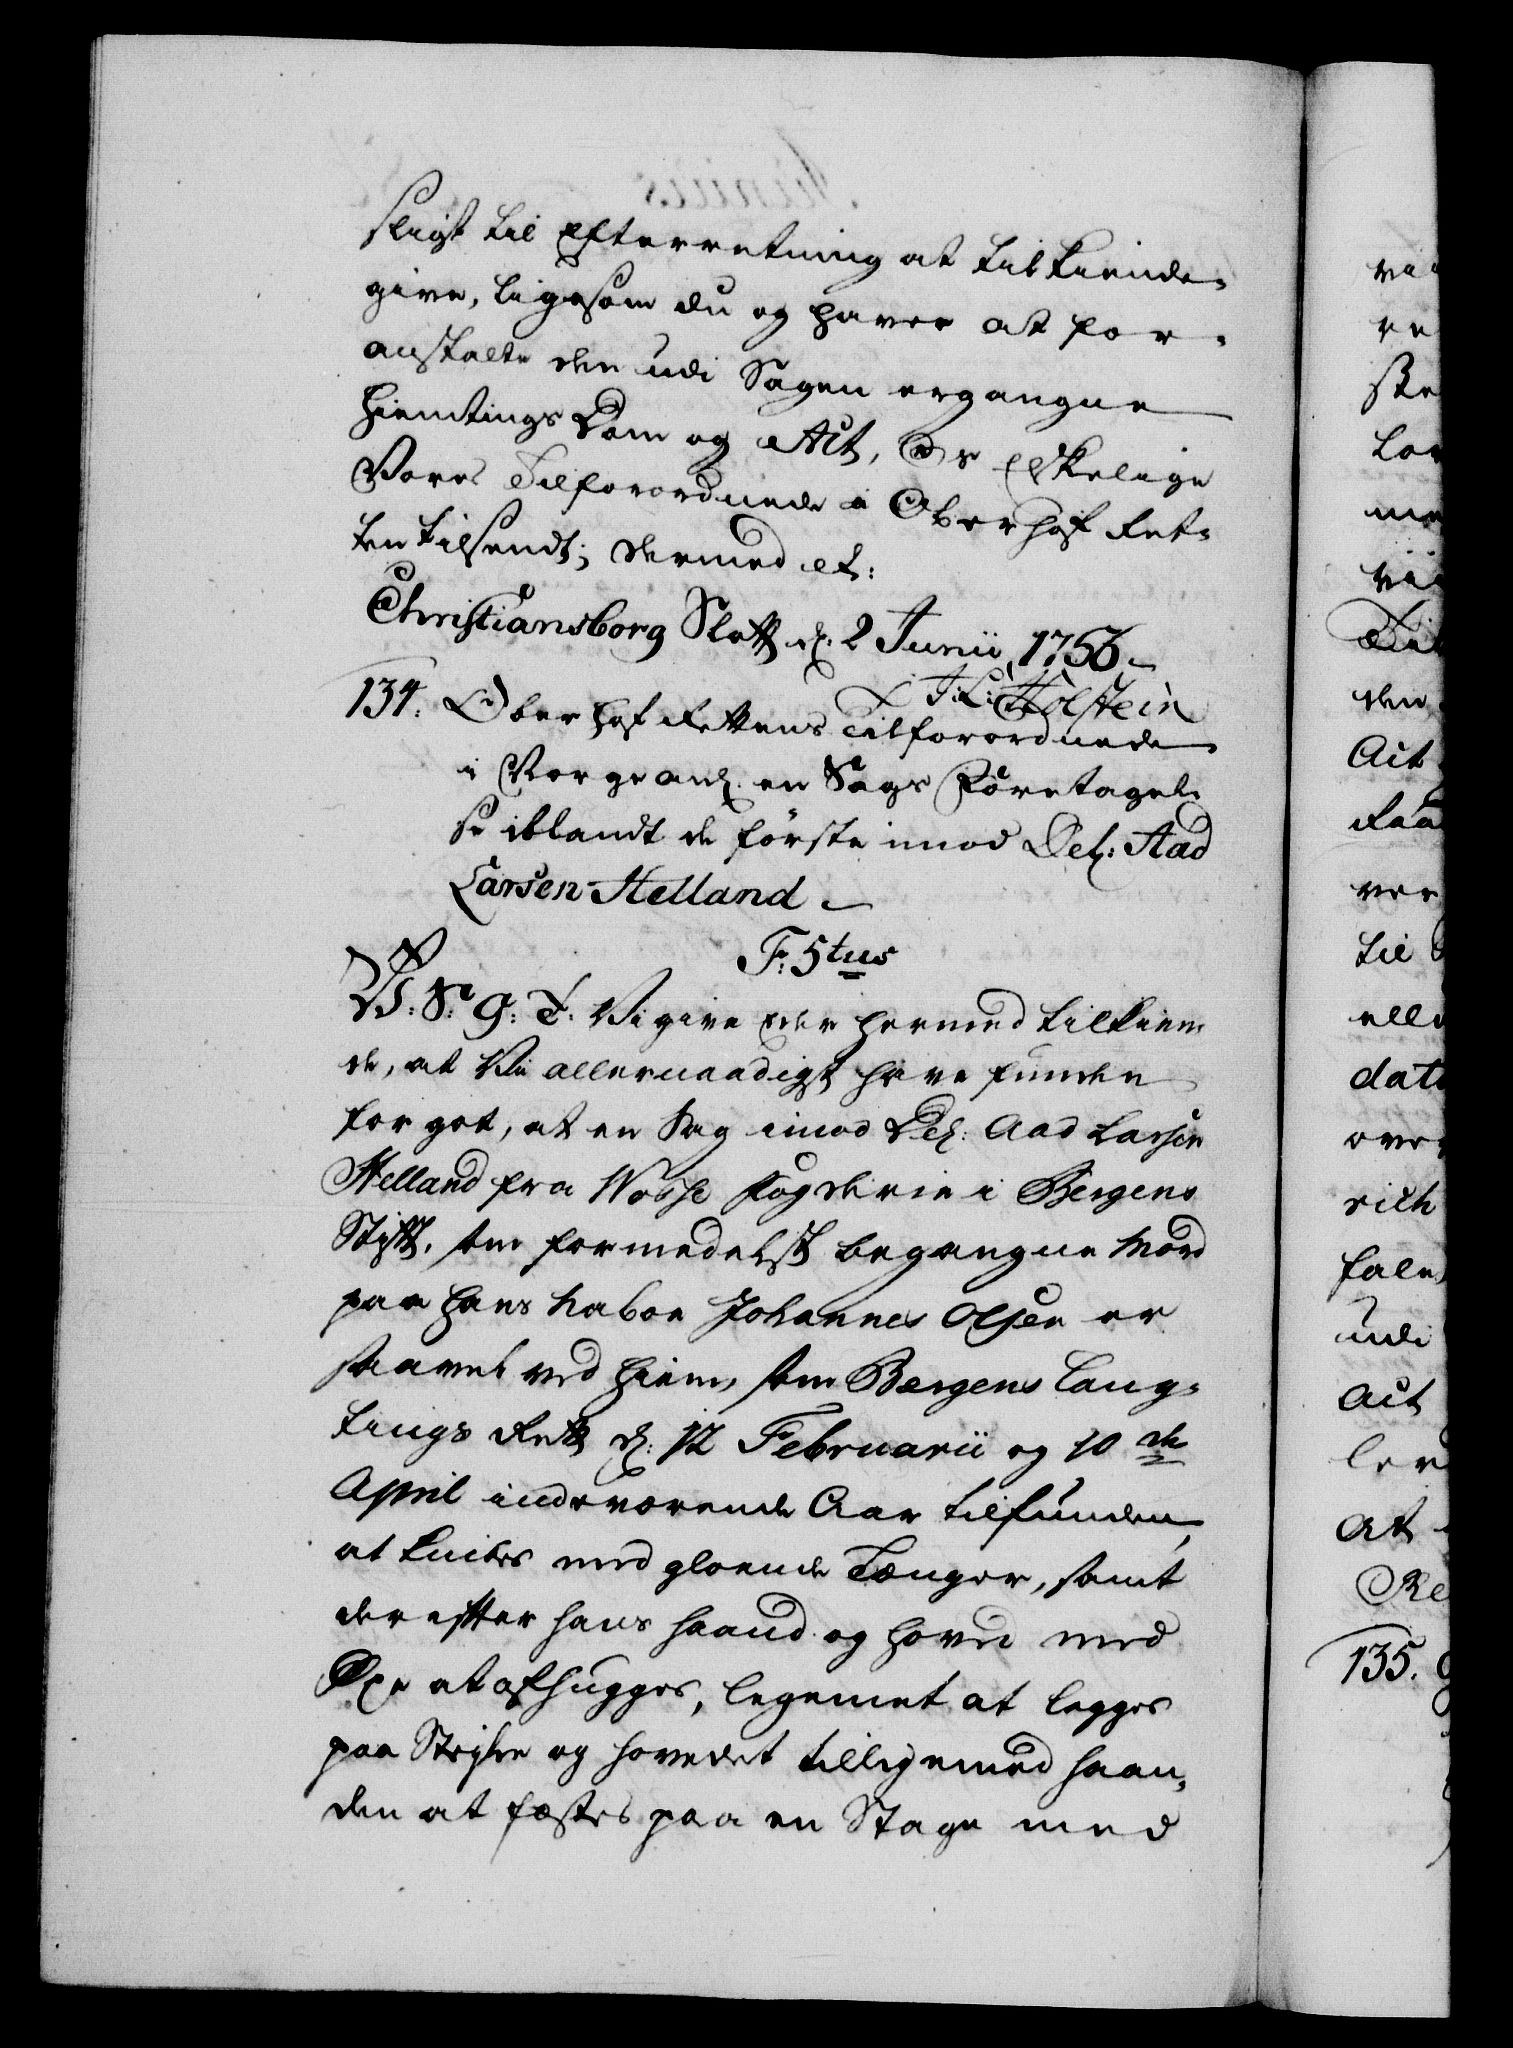 sligt til Efterretning at tilkiende-
give, ligesom du og haver at for-
anstalte den udi Sagen ergangne
Hiemtings Dom og Act, Os Elskelige
Vores Tilforordnede i Oberhof Ret-
ten tilsendt; dermed et:
Christiansborg Slott d. 2 Junii 1756.
J: L: Holstein
134. Oberhof Rettens Tilforordnede
i Norge anl. en Sags Foretagel-
se iblandt de første imod Del: Aad
Larsen Helland
F: 5tus
W: S: G: T: Vi give Eder hermed tilkien-
de, at Vi allernaadigst have funden
for got, at en Sag imod Del: Aad Larsen
Helland fra Wosse fogderie i Bergens
Stift, som formedelst begangne Mord
paa hans Naboe Johannes Olsen er
saavel ved Hiem- som Bergens Laug-
tings Rett d: 12 Februarii og 10 de
April indeværende Aar tilfunden,
at knibes med gloende Tænger, samt
derefter hans Haand og Hoved med
Øxe at afhugges, legemet at legges
paa Steyle og hovedet tilligemed Haan-
den at fæstes paa en Stage med
135.